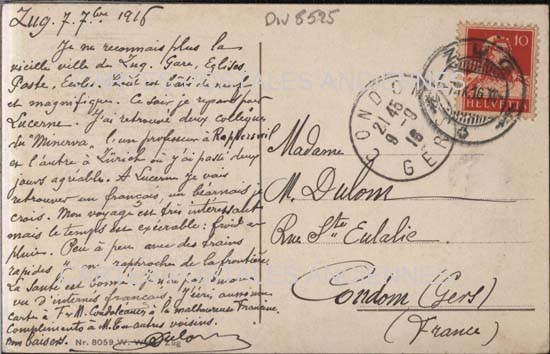 Zug. 7. 7bre 1916
Div 8525
Je ne reconnais plus la
vieille ville de Zug. Gare, Eglises,
Poste, Ecoles. Tout est bâti de neuf
et magnifique. Ce soir je repars pour
Lucerne. J'ai retrouvé deux collègues
du "Minerva", l'un professeur à Rapperswil
et l'autre à Zürich où j'ai passé deux
jours agréable. A Lucerne je vais
retrouver un français, un béarnais je
crois. Mon voyage est très intéressant
mais le temps est exécrable: froid et
pluie. Peu à peu avec des trains
"rapides" on rapproche de la frontière.
La santé est bonne. Je n'ai pas
vu d'internés français. J'écris aussi une
carte à Fr M. à la malheureuse
Compliments à M. autres voisins.
Bons baisers. Dulom
Nr. 8059 W. Zug
10
HELVETIA
ZUG
CONDOM
21 45
9-9
16
GERS
Madame
M. Dulom
Rue Ste Eulalie
Condom (Gers)
(France)